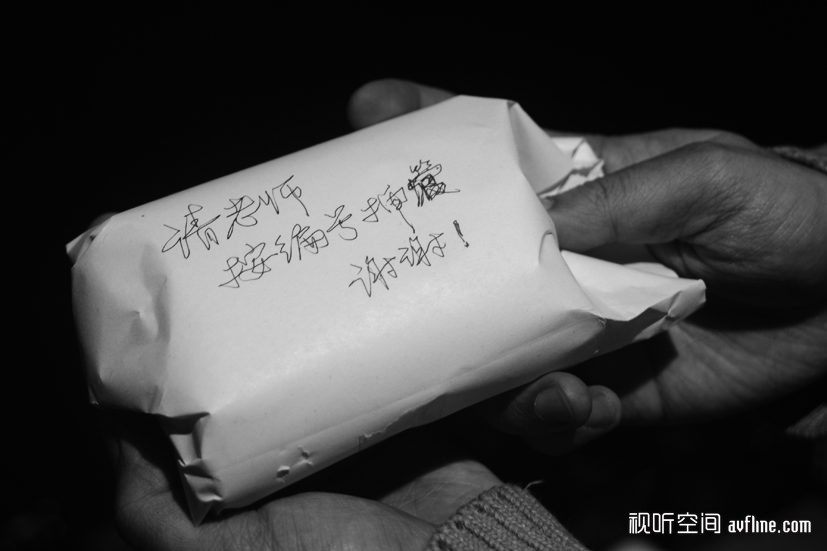 请老师
按编号插管
谢谢!
视听空间 avfline.com